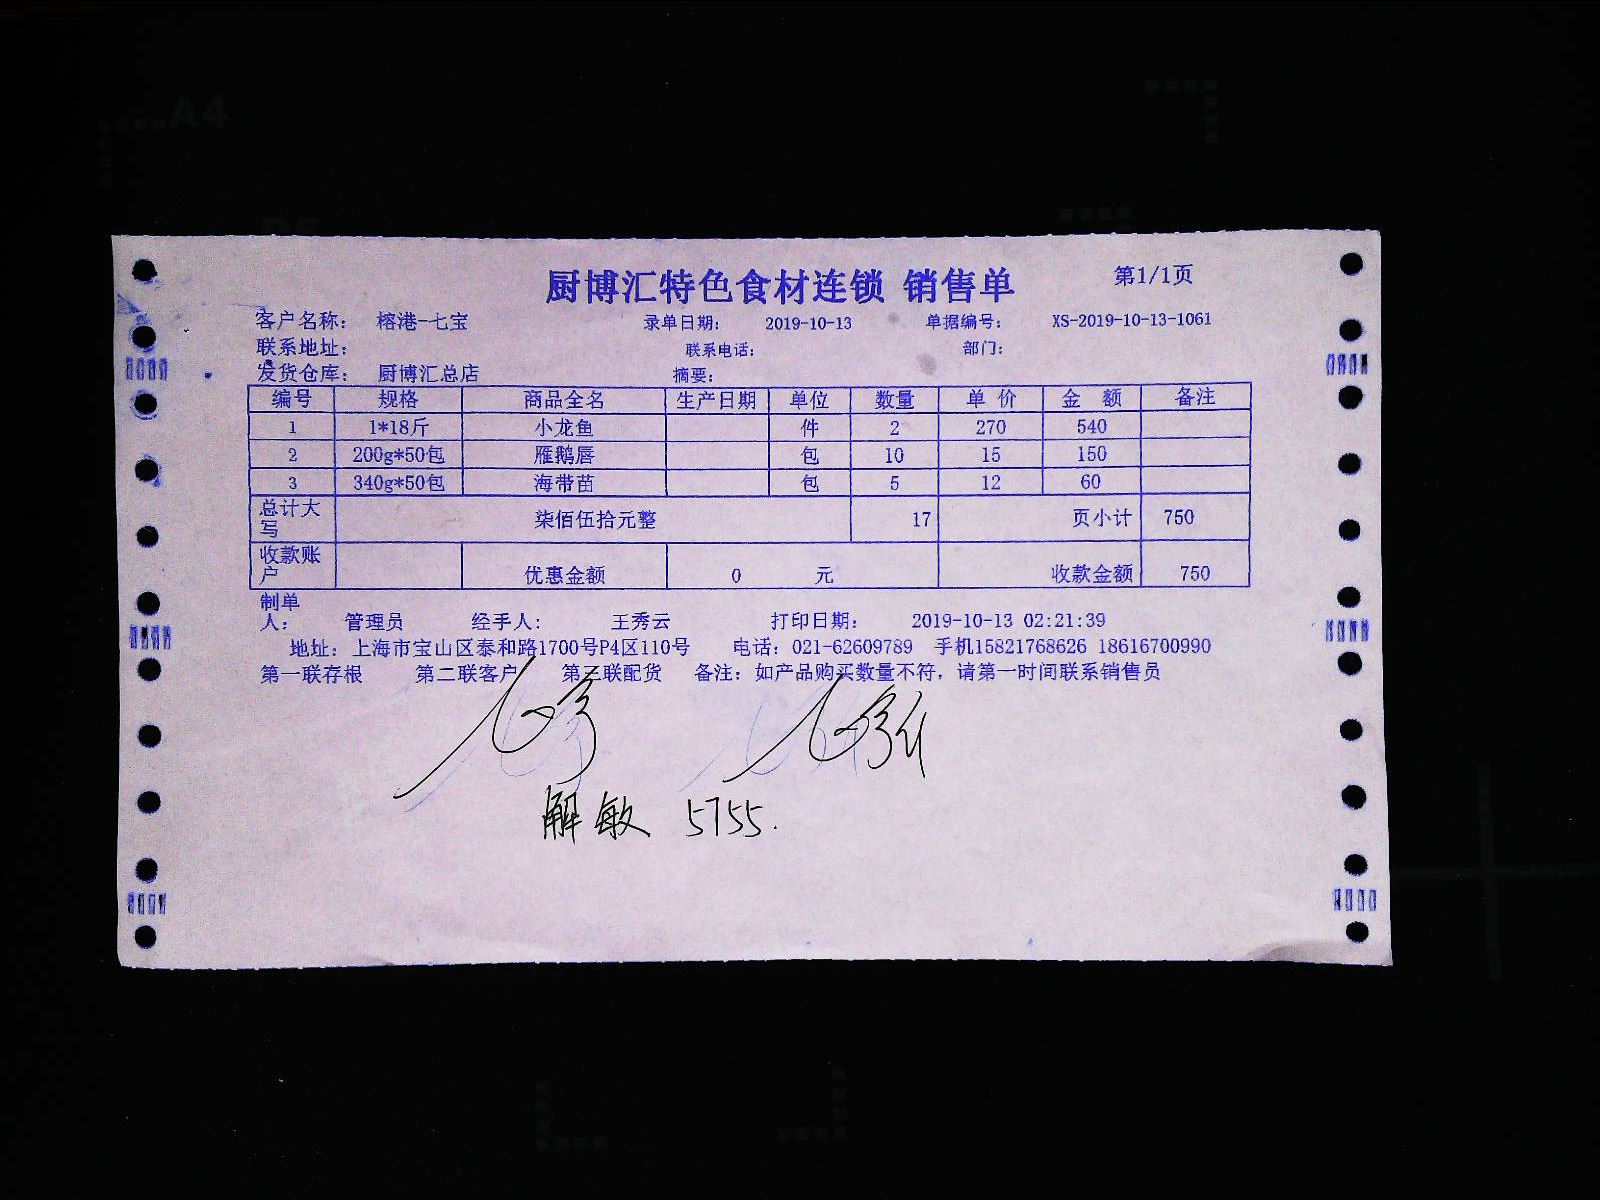 厨博汇特色食材连锁 销售单 第1/1页
客户名称: 榕港-七宝 录单日期: 2019-10-13 单据编号: XS-2019-10-13-1061
联系地址: 联系电话: 部门:
发货仓库: 厨博汇总店 摘要:
编号 规格 商品全名 生产日期 单位 数量 单 价 金 额 备注
1 1*18斤 小龙鱼 件 2 270 540
2 200g*50包 雁鹅唇 包 10 15 150
3 340g*50包 海带苗 包 5 12 60
总计大写 柒佰伍拾元整 17 页小计 750
收款账户 优惠金额 0 元 收款金额 750
制单人: 管理员 经手人: 王秀云 打印日期: 2019-10-13 02:21:39
地址: 上海市宝山区泰和路1700号P4区110号 电话: 021-62609789 手机15821768626 18616700990
第一联存根 第二联客户 第三联配货 备注: 如产品购买数量不符, 请第一时间联系销售员
解敏 5755.
A4